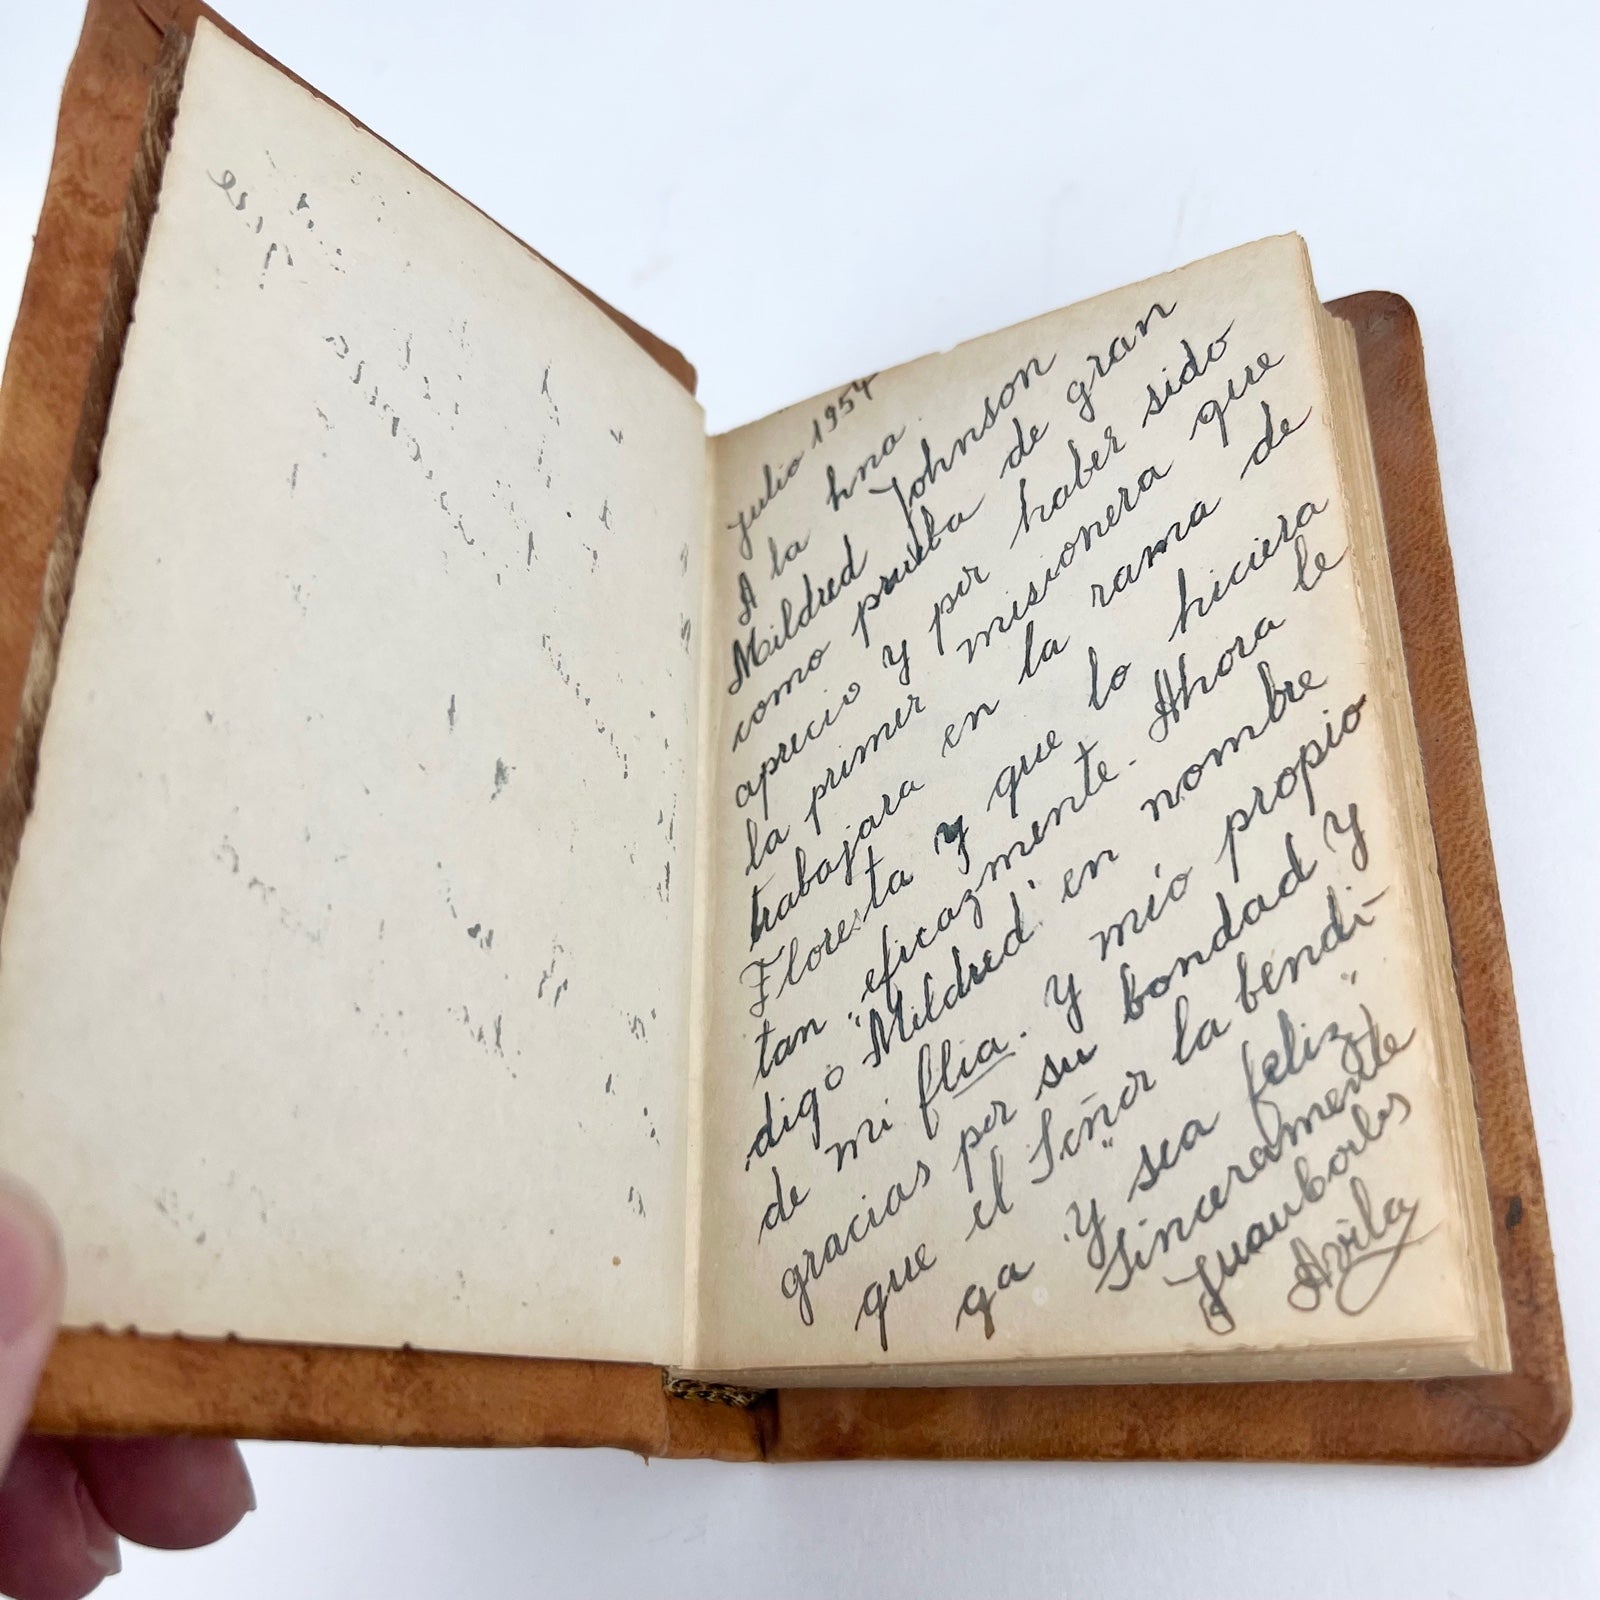 julio 1954
A la hna.
Mildred Johnson
como prueba de gran
aprecio y por haber sido
la primer misionera que
trabajara en la rama de
Floresta y que lo hiciera
tan "eficazmente. Ahora le
digo Mildred' en nombre
de mi flia. y mío propio
gracias por su bondad y
que el Señor la bendi-
ga y sea feliz"
Sinceramente
Avila